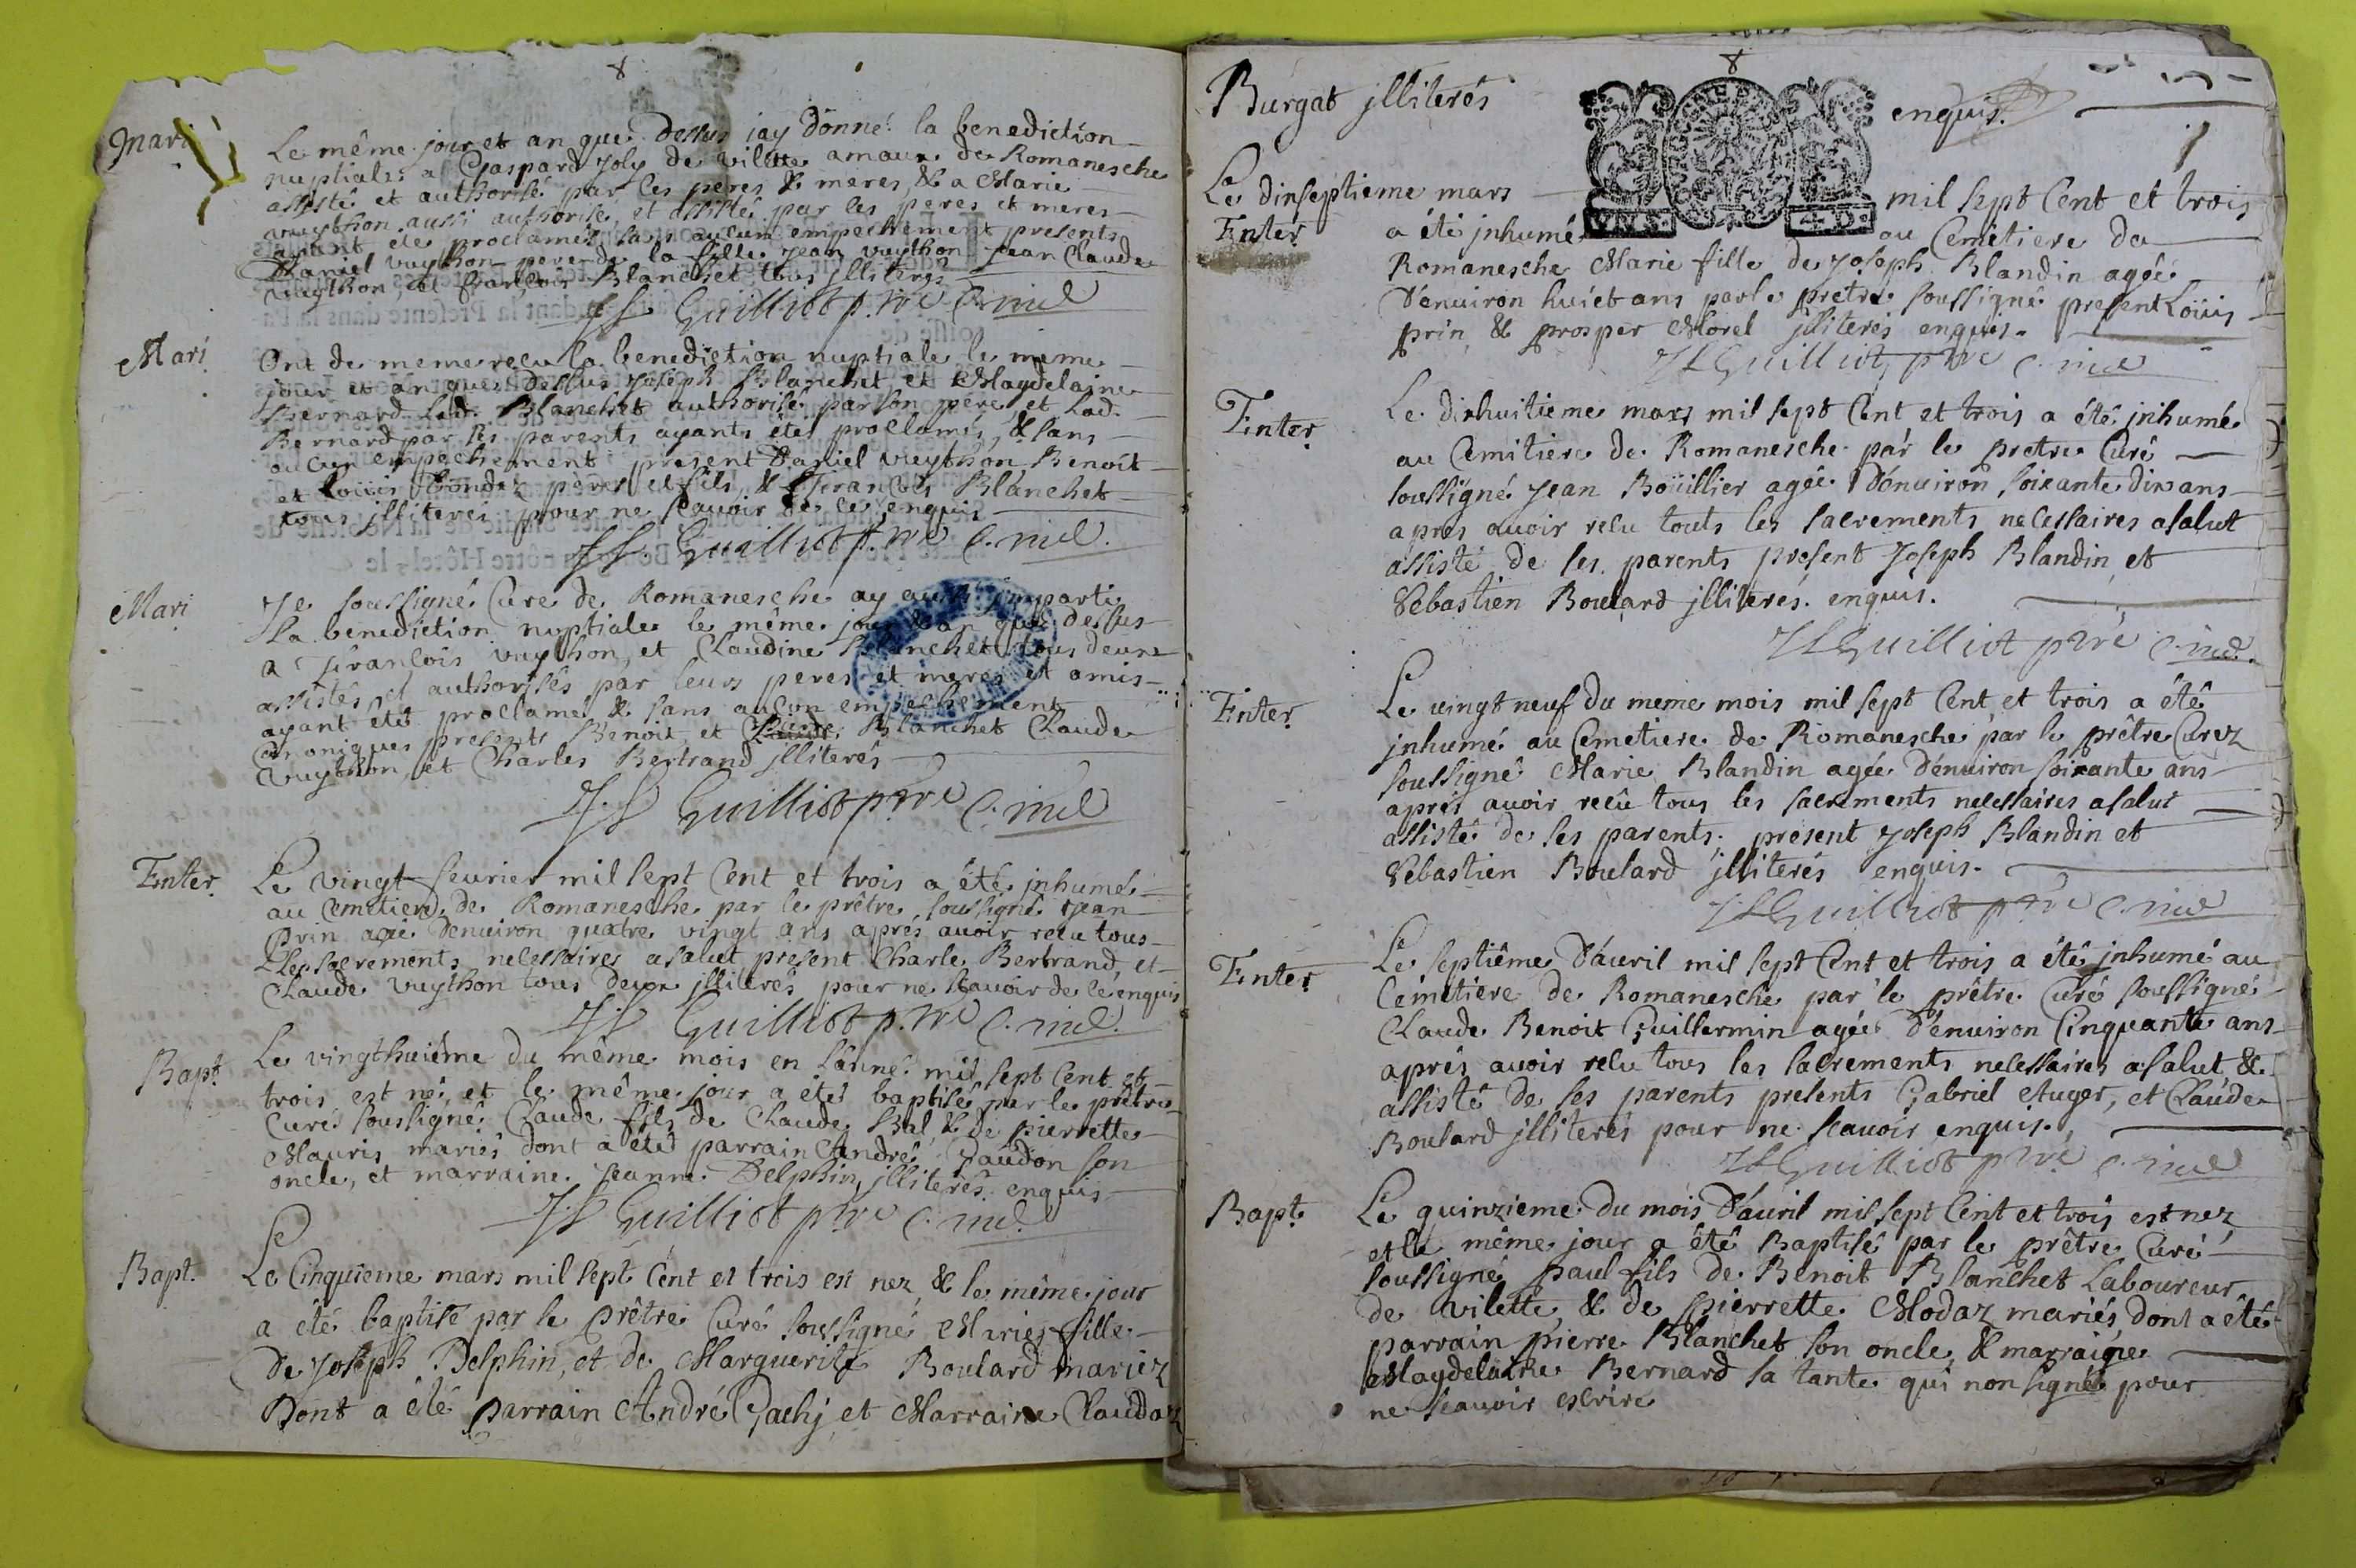 Mari
Le même jour et an que dessus jay donné la benediction
nuptiale a Gaspard Joly de vilette amaur de Romanesche
assisté et authorisé par ses peres & meres, & a Marie
vuython aussi authorisé, et assisté par ses peres et meres
ayant été proclamés sans aucun empechement presents
Daniel vuython pere de la fille Jean vuython Jean Claude
vuython, et françois Blanchet tous jlliterés
JS Guilliot p.tre C. niel
Mari
Ont de meme reçu la benediction nuptiale le même
jour et an que dessus Joseph Blanchet et Magdelaine
Bernard led. Blanchet authorisé par son père, et lad.
Bernard par ses parents ayants étés proclamés, & sans
aucun empechement present Daniel vuython Benoit
et Loüis pères et fils, & françois Blanchet
tous jlliterés pour ne scavoir de ce enquis
JS. Guilliot p.tre C. niel.
Mari
Je soussigné Curé de Romanesche ay aussi imparti
la benediction nuptiale le même jour & an que dessus
a françois vuython, et Claudine Blanchet tous deux
assistés et authorisés par leurs peres et meres et amis
ayant étés proclamé & sans aucun empechement
Canoniques presents Benoit, et Claude Blanchet Claude
vuython, et Charles Bertrand jlliterés
J.S Guilliot ptre C. niel
Enter.
Le vingt feurier mil sept Cent et trois a été jnhumé
au Cemetiere de Romanesche par le prêtre soussigné Jean
prin agé denuiron quatre vingt ans apres auoir recu tous
les sacrements necessaires a salut present Charle Bertrand, et
Claude vuython tous deux jlliterés pour ne scauoir de ce enquis
J.S Guilliot p.tre C. niel.
Bapt.
Le vingthuiéme du même mois en lânné mil sept Cent et
trois est né, et le même jour a étés baptisé par le prêtre
Curé soussigné Claude fils de Claude Bal, & de pierrette
Mauris mariés dont a étéd parrain André paudon son
oncle, et marraine Jeanne Delphin jlliterés enquis
J.S Guilliot ptre C. niel.
Bapt.
Le Cinquieme mars mil sept Cent et trois est nez, & le même jour
a été baptisé par le prêtre Curé soussigné Marie fille
de Joseph Delphin, et de Marguerite Boulard mariez
Dont a été parrain André Gachj et Marraine Claudaz
Burgat jlliterés enquis.
Le dixseptieme mars mil sept Cent et trois
Enter.
a été jnhumé au Cemetiere de
Romanesche Marie fille de Joseph Blandin agéé
d'enuiron huict ans par le pretre soussigné present Loüis
prin, & prosper Morel jlliterés enquis.
JSGuilliot ptre C. niel
Enter.
Le dixhuitieme mars mil sept Cent et trois a été jnhumé
au Cemitiere de Romanesche par le pretre Curé
soussigné Jean Boüillier agée d'enuiron soixante dix ans
apres auoir recu touts les sacrements necessaires a salut
assisté de ses parents present Joseph Blandin, et
Sebastien Boulard jlliterés. enquis.
JSGuilliot ptre C. niel.
Enter.
Le uingt neuf du meme mois mil sept Cent, et trois a été
jnhumé au Cemetiere de Romanesche par le prêtre Curez
soussigné Marie Blandin agée d'enuiron soixante ans
aprés auoir recû tous les sacrements necessaires a salut
assisté de ses parents; present Joseph Blandin et
Sebastien Boulard jlliterés enquis.
JSGuilliot ptre C. niel
Enter.
Le septiême d'auril mil sept Cent et trois a été jnhumé au
Cemetiere de Romanesche par le prêtre Curé soussigné
Claude Benoit Guillermin agée d'enuiron Cinquante ans
aprés auoir relu tous les sacrements necessaires a salut &
assisté de ses parents presents Gabriel Auger, et Claude
Boulard jlliterés pour ne scauoir enquis.
JSGuilliot ptre C. niel
Bapt.
Le quinzieme du mois d'auril mil sept Cent et trois est nez
et le même jour a été Baptisé par le prêtre Curé
soussigné paul fils de Benoit Blanchet Laboureur
de vilette, & de pierrette Modaz mariés, dont a été
parrain pierre Blanchet son oncle, & marraigne
Magdelaine Bernard sa tante qui non signé pour
ne scauoir escrire